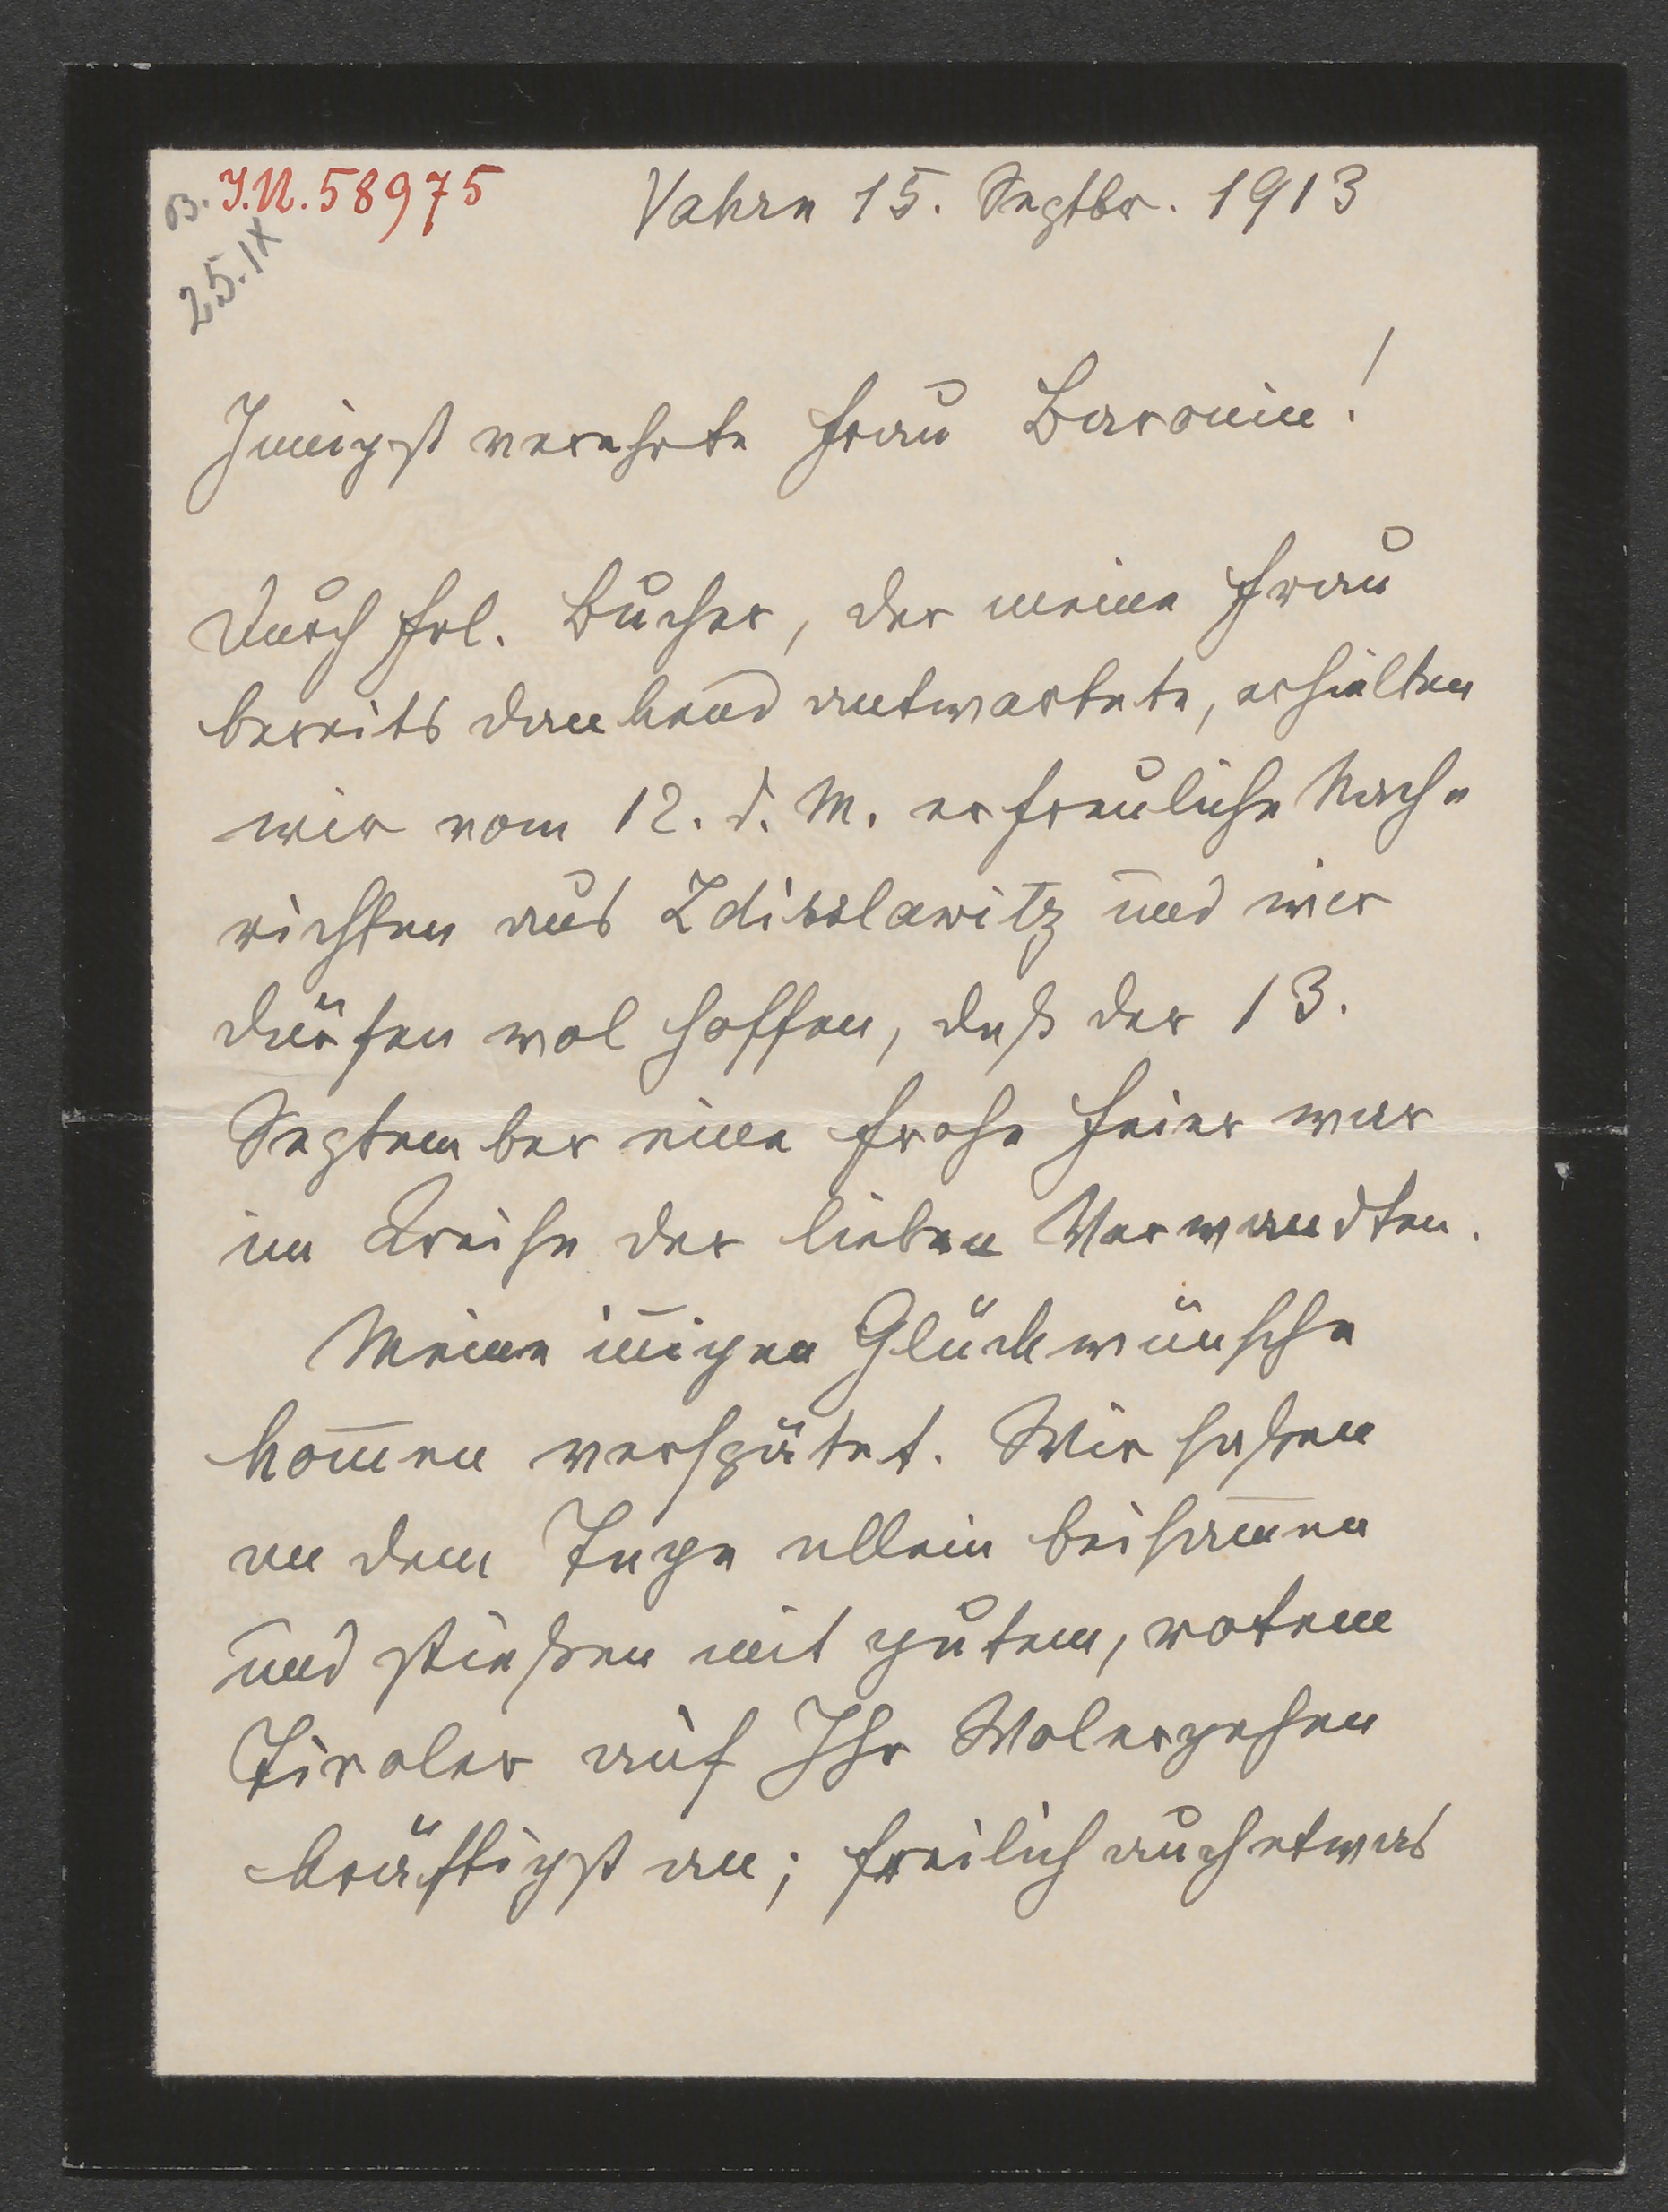 B. I.N. 58975
25.IX
Vahrn 15. Septbr. 1913
Innigst verehrte Frau Baronin!
Durch Frl. Bucher, der meine Frau
bereits dankend antwortete, erhielten
wir vom 12. d. M. erfreuliche Nach-
richten aus Zdisslawitz und wir
dürfen wol hoffen, daß der 13.
September eine frohe Feier war
im Kreise der lieben Verwandten.
Meine iñigen Glückwünsche
kom̄en verspätet. Wir saßen
an dem Tage allein beisam̄en
und stießen mit gutem, rotem
Tiroler auf Ihr Wolergehen
kräftigst an; freilich auch etwas